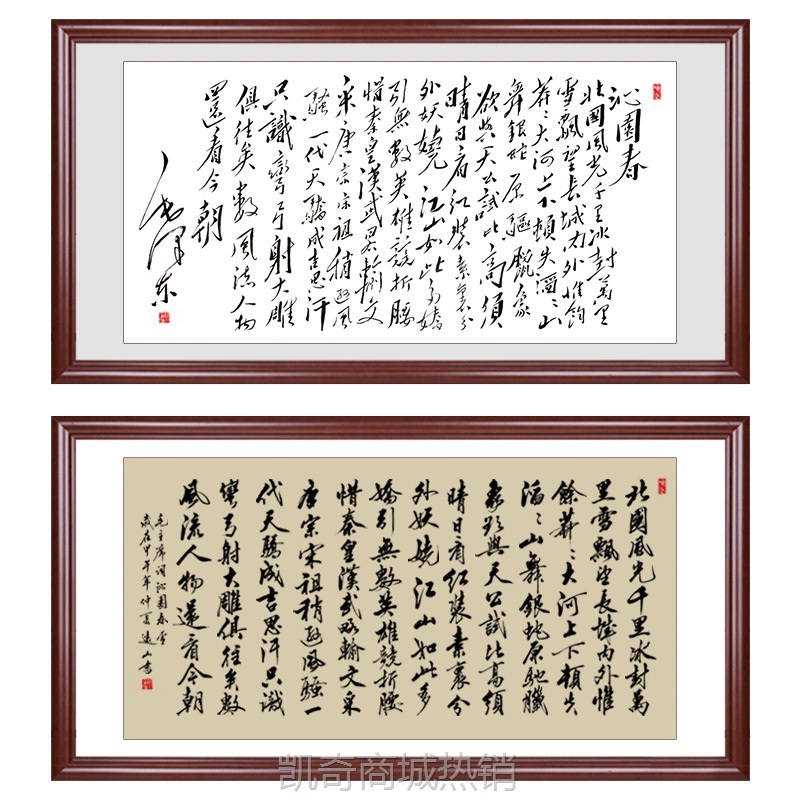 沁園春
北國風光千里冰封萬里
雪飄望長城内外惟餘
莽〻大河上下頓失滔〻山
舞銀蛇原驅臘象
欲與天公試比高須
晴日看紅裝素裹分
外妖嬈江山如此多嬌
引無數英雄競折腰
惜秦皇漢武略輸文
采唐宗宋祖稍遜風
騷一代天驕成吉思汗
只識彎弓射大雕
俱往矣數風流人物
還看今朝
毛澤東
北國風光千里冰封萬
里雪飄望長城内外惟
餘莽〻大河上下頓失
滔〻山舞銀蛇原馳臘
象欲與天公試比高須
晴日看紅裝素裹分
外妖嬈江山如此多
嬌引無數英雄競折腰
惜秦皇漢武略輸文采
唐宗宋祖稍遜風騷一
代天驕成吉思汗只識
彎弓射大雕俱往矣數
風流人物還看今朝
毛主席詞沁園春雪
歲在甲午年仲夏遠山書
凯奇商城热销